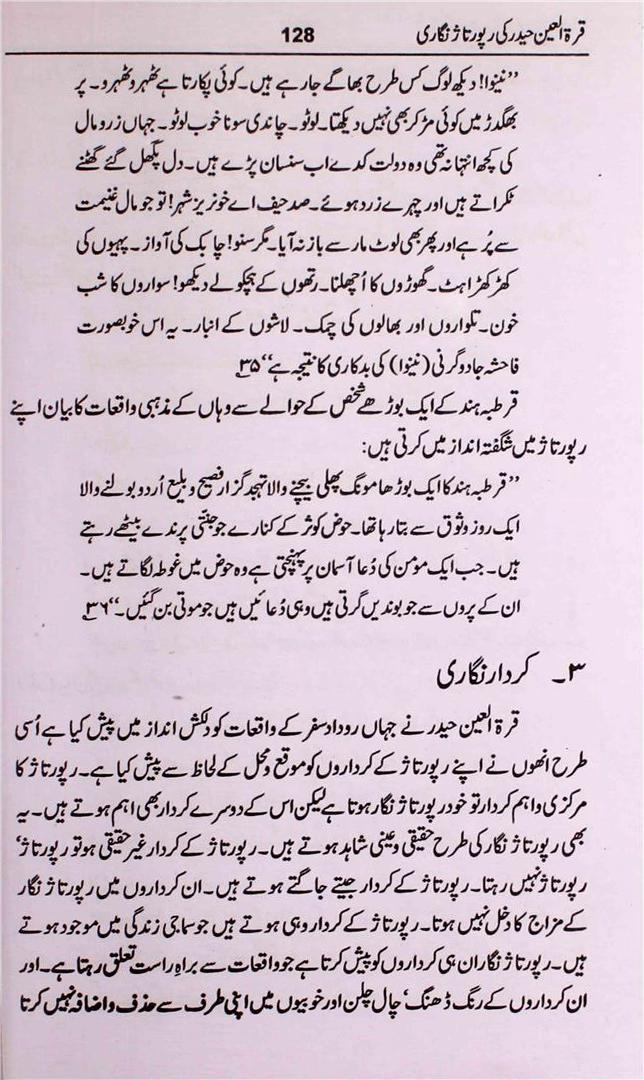 قرۃ العین حیدر کی رپورتاژ نگاری
128
’’نینوا! دیکھ لوگ کس طرح بھاگے جا رہے ہیں۔ کوئی پکارتا ہے ٹھہرو ٹھہرو۔ پر
بھگدڑ میں کوئی مڑ کر بھی نہیں دیکھتا۔ لوٹو۔ چاندی سونا خوب لوٹو۔ جہاں زر و مال
کی کچھ انتہا نہ تھی وہ دولت کدے اب سنسان پڑے ہیں۔ دل پگھل گئے گھٹنے
ٹکراتے ہیں اور چہرے زرد ہوئے۔ صد حیف اے خونریز شہر! تو جو مال غنیمت
سے پُر ہے اور پھر بھی لوٹ مار سے باز نہ آیا۔ مگر سنو! چابک کی آواز۔ پہیوں کی
کھڑکھڑاہٹ۔ گھوڑوں کا اُچھلنا۔ رتھوں کے ہچکولے دیکھو! سواروں کا شب
خون۔ تلواروں اور بھالوں کی چمک۔ لاشوں کے انبار۔ یہ اس خوبصورت
فاحشہ جادوگرنی (نینوا) کی بدکاری کا نتیجہ ہے‘‘ ۳۵؎
قرطبہ ہند کے ایک بوڑھے شخص کے حوالے سے وہاں کے مذہبی واقعات کا بیان اپنے
رپورتاژ میں شگفتہ انداز میں کرتی ہیں:
’’قرطبہ ہند کا ایک بوڑھا مونگ پھلی بیچنے والا تہجد گزار فصیح و بلیغ اُردو بولنے والا
ایک روز وثوق سے بتا رہا تھا۔ حوض کوثر کے کنارے جو جنتی پرندے بیٹھے رہتے
ہیں۔ جب ایک مومن کی دُعا آسمان پر پہنچتی ہے وہ حوض میں غوطہ لگاتے ہیں۔
ان کے پروں سے جو بوندیں گرتی ہیں وہی دُعائیں ہیں جو موتی بن گئیں۔‘‘ ۳۶؎
۳۔ کردار نگاری
قرۃ العین حیدر نے جہاں روداد سفر کے واقعات کو دلکش انداز میں پیش کیا ہے اُسی
طرح انھوں نے اپنے رپورتاژ کے کرداروں کو موقع و محل کے لحاظ سے پیش کیا ہے۔ رپورتاژ کا
مرکزی و اہم کردار تو خود رپورتاژ نگار ہوتا ہے لیکن اس کے دوسرے کردار بھی اہم ہوتے ہیں۔ یہ
بھی رپورتاژ نگار کی طرح حقیقی و عینی شاہد ہوتے ہیں۔ رپورتاژ کے کردار غیر حقیقی ہو تو رپورتاژ‘
رپورتاژ نہیں رہتا۔ رپورتاژ کے کردار جیتے جاگتے ہوتے ہیں۔ ان کرداروں میں رپورتاژ نگار
کے مزاج کا دخل نہیں ہوتا۔ رپورتاژ کے کردار وہی ہوتے ہیں جو سماجی زندگی میں موجود ہوتے
ہیں۔ رپورتاژ نگار ان ہی کرداروں کو پیش کرتا ہے جو واقعات سے براہِ راست تعلق رہتا ہے۔ اور
ان کرداروں کے رنگ ڈھنگ‘ چال چلن اور خوبیوں میں اپنی طرف سے حذف و اضافہ نہیں کرتا